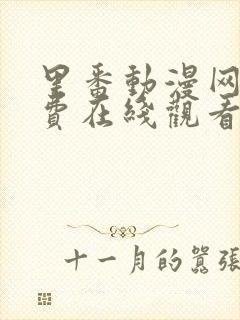 里番動漫网
費在綫觀看
十一月的囂張